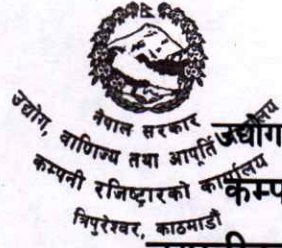 नेपाल सरकार
उद्योग, वाणिज्य तथा आपूर्ति
कम्पनी रजिष्ट्रारको कार्यालय
त्रिपुरेश्वर, काठमाडौं
उद्योग